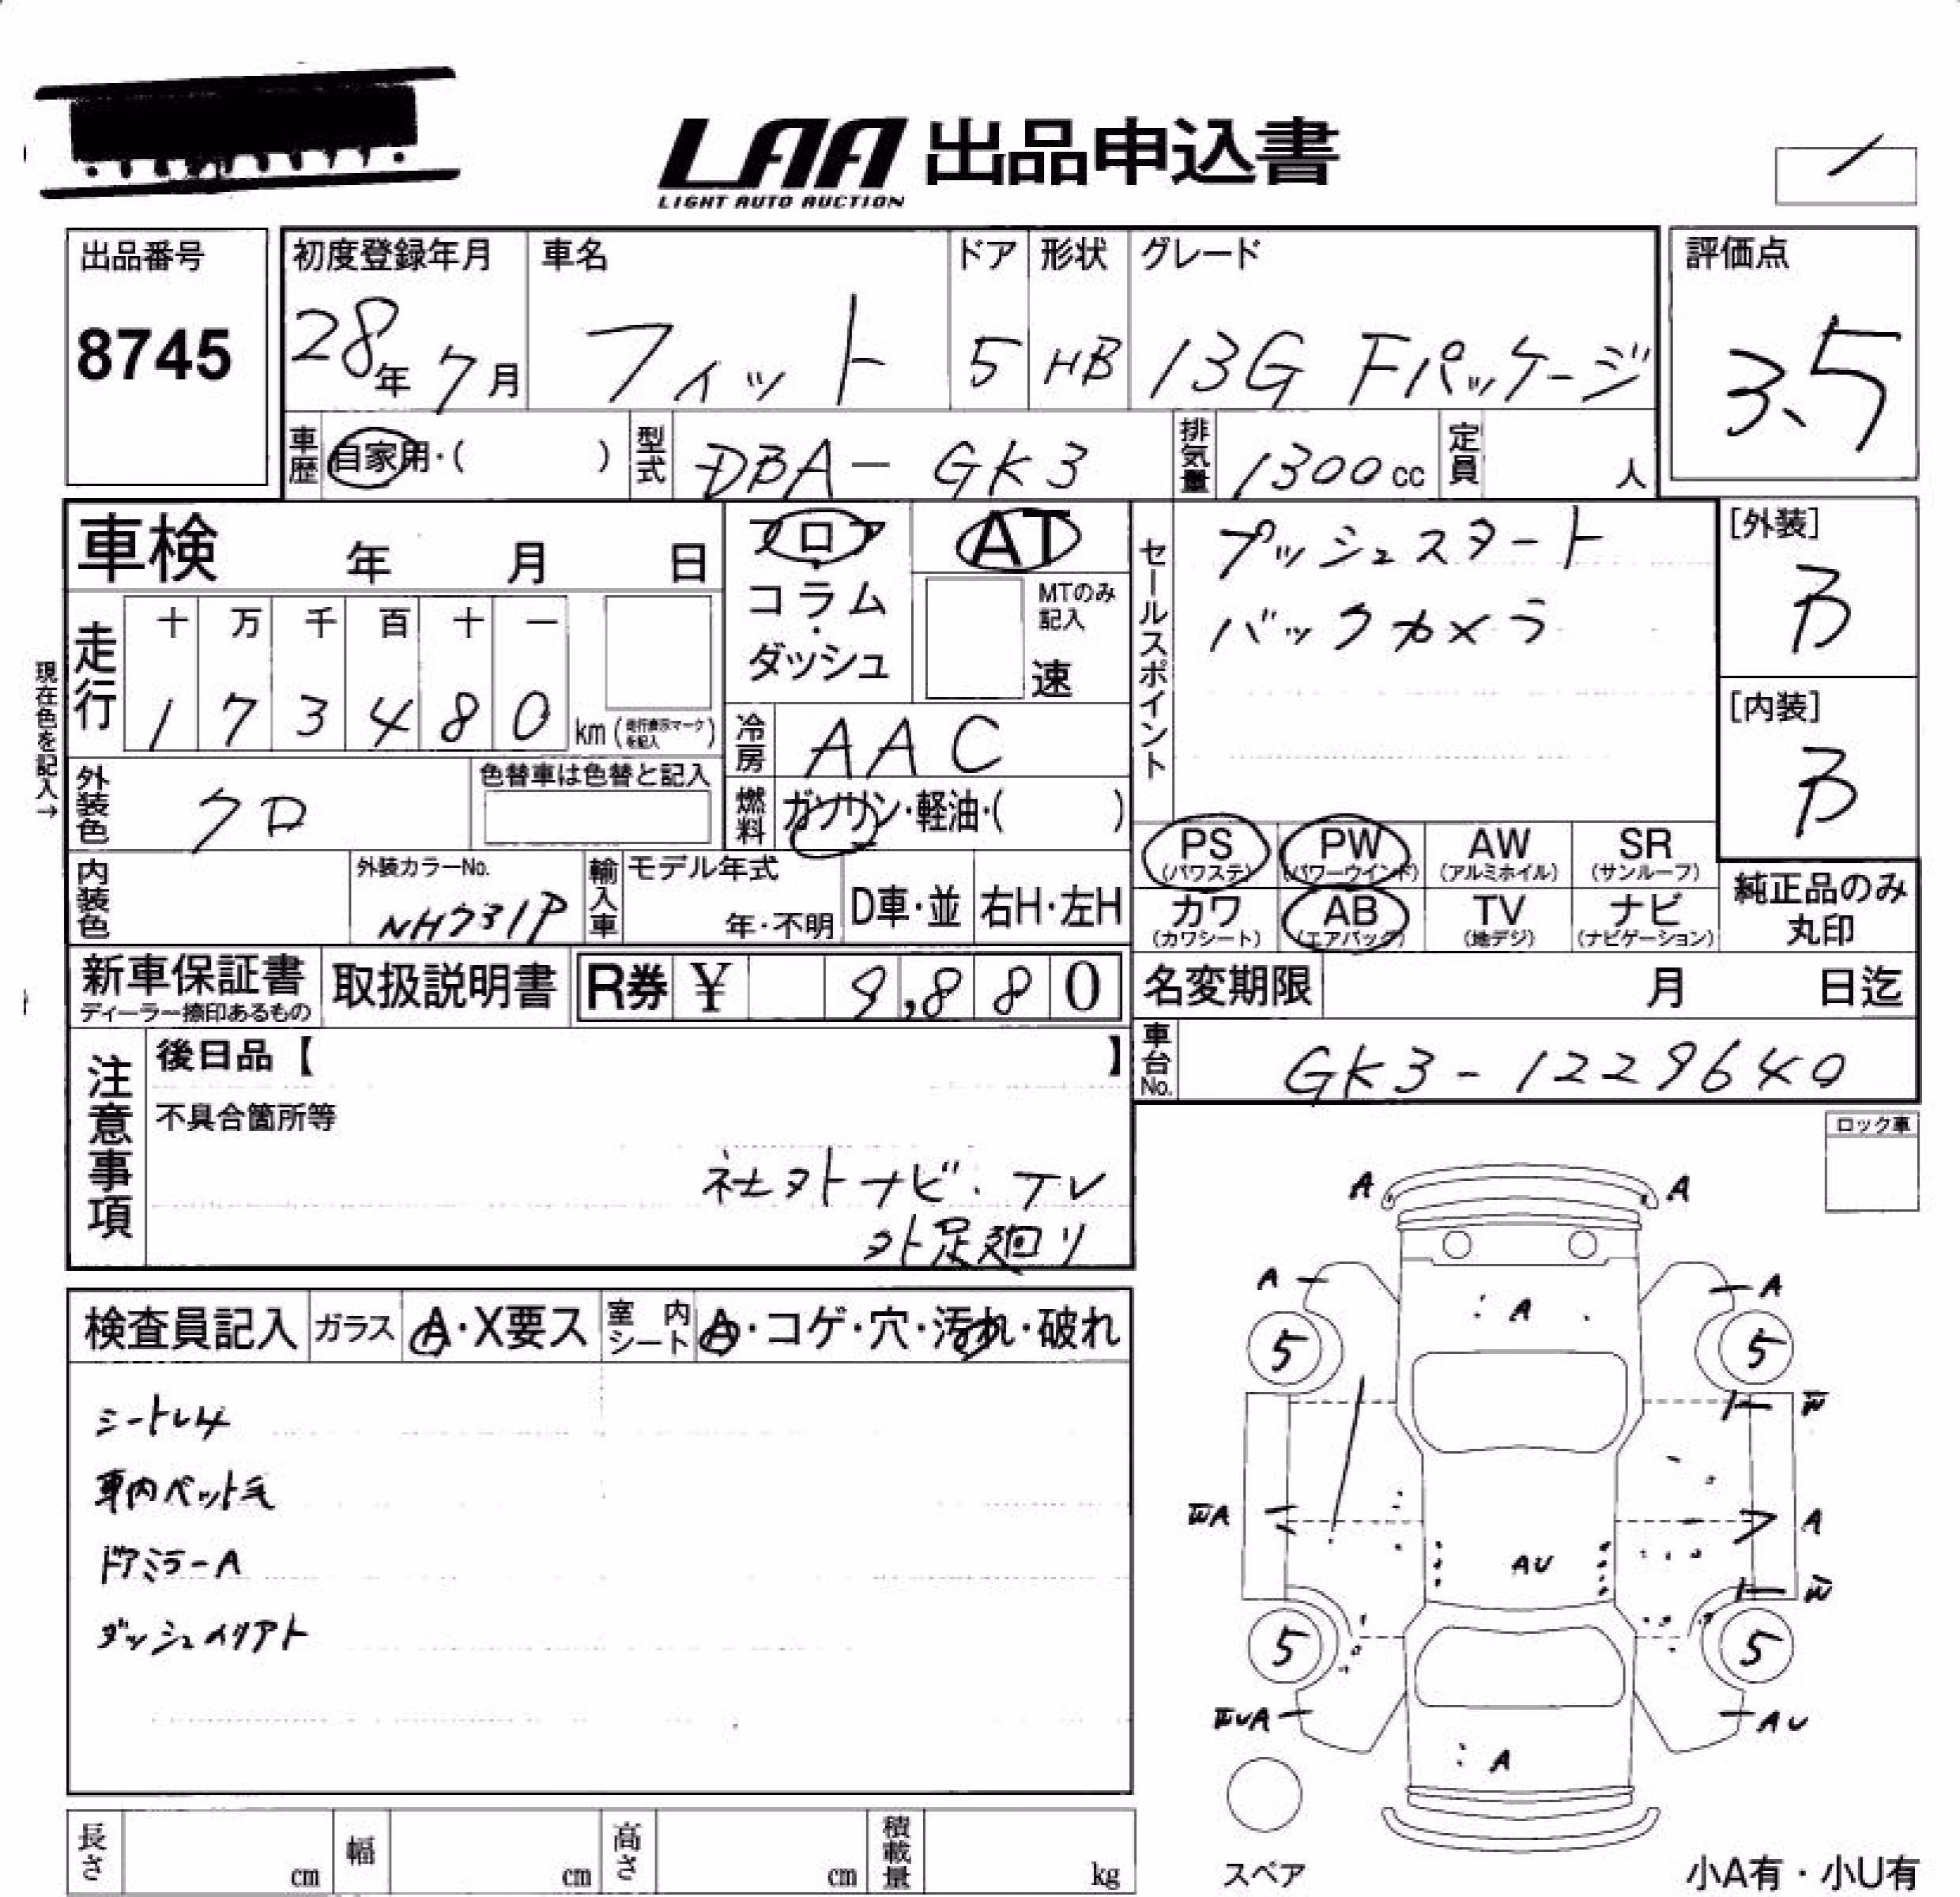 LAA 出品申込書
LIGHT AUTO AUCTION
出品番号
8745
初度登録年月
28年 7月
車名
フィット
ドア
5
形状
HB
グレード
13G Fパッケージ
評価点
3.5
車歴 自家用・( )
型式 DBA-GK3
排気量 1300cc
定員 人
車検 年 月 日
走行
十 万 千 百 十 一
1 7 3 4 8 0 km (走行表示マークを記入)
現在色を記入→
外装色 クロ
色替車は色替と記入
内装色
外装カラーNo.
NH731P
輸入車
モデル年式
年・不明
D車・並
右H・左H
フロア
・
コラム
・
ダッシュ
AT
MTのみ記入
速
冷房 AAC
燃料 ガソリン・軽油・( )
セールスポイント
プッシュスタート
バックカメラ
[外装]
B
[内装]
B
PS (パワステ)
PW (パワーウインド)
AW (アルミホイル)
SR (サンルーフ)
カワ (カワシート)
AB (エアバッグ)
TV (地デジ)
ナビ (ナビゲーション)
純正品のみ
丸印
新車保証書
ディーラー捺印あるもの
取扱説明書
R券 ¥ 9,880
名変期限 月 日迄
車台No. GK3-1229640
注意事項
後日品【 】
不具合箇所等
社外ナビ・TV
外足廻り
ロック車
検査員記入
ガラス A・X要ス
室内シート A・コゲ・穴・汚れ・破れ
シートレ4
車内ペット毛
ドアミラーA
A A
A A
A
5 5
W
WA A
AU
W
5 5
WUA AU
A
スペア
長さ cm
幅 cm
高さ cm
積載量 kg
小A有・小U有